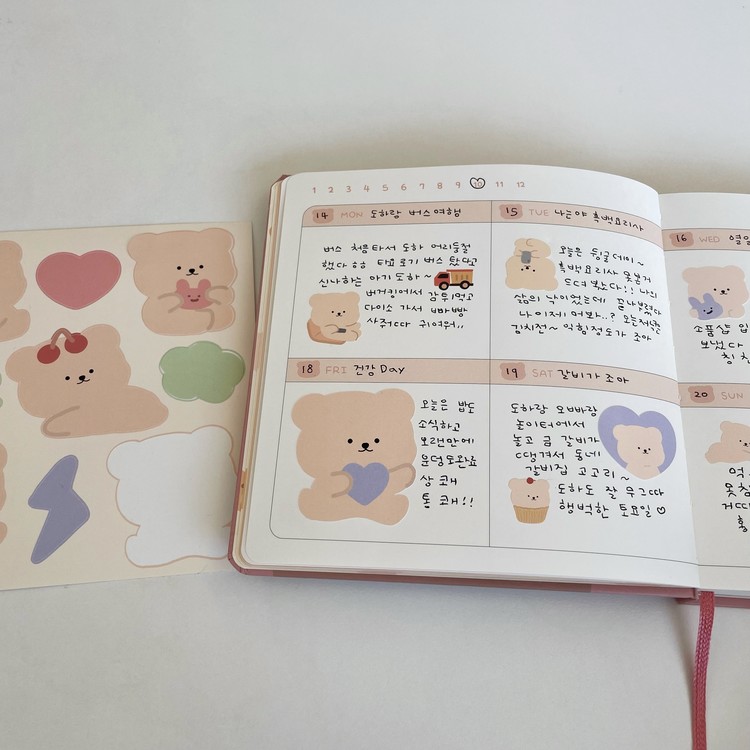 1 2 3 4 5 6 7 8 9 10 11 12
14 MON 도하랑 버스여행
버스 처음타서 도하 어리둥절
했다 ㅎㅎ 타요 로기 버스 탔다고
신나하는 아기 도하~
버거킹에서 감튀먹고
다이소 가서 빠빠빵
사줬따 귀여워,,
15 TUE 나는야 흑백요리사
오늘은 뒹굴데이~
흑백요리사 못본거
드뎌 봤다!! 나의
삶의 낙이었는데 끝나부렀다
나 이제 머봐..? 오늘저녁은
김치전~ 익힘정도가 조아
16 WED
소품샵
보냈다
18 FRI 건강 Day
오늘은 밥도
소식하고
오랜만에
운덩도완료
상쾌
통쾌!!
19 SAT 갈비가 조아
도하랑 오빠랑
놀이터에서
놀고 급 갈비가
땡겨서 동네
갈비집 고고리~
도하도 잘 무그따
행벅한 토요일♡
20 SUN